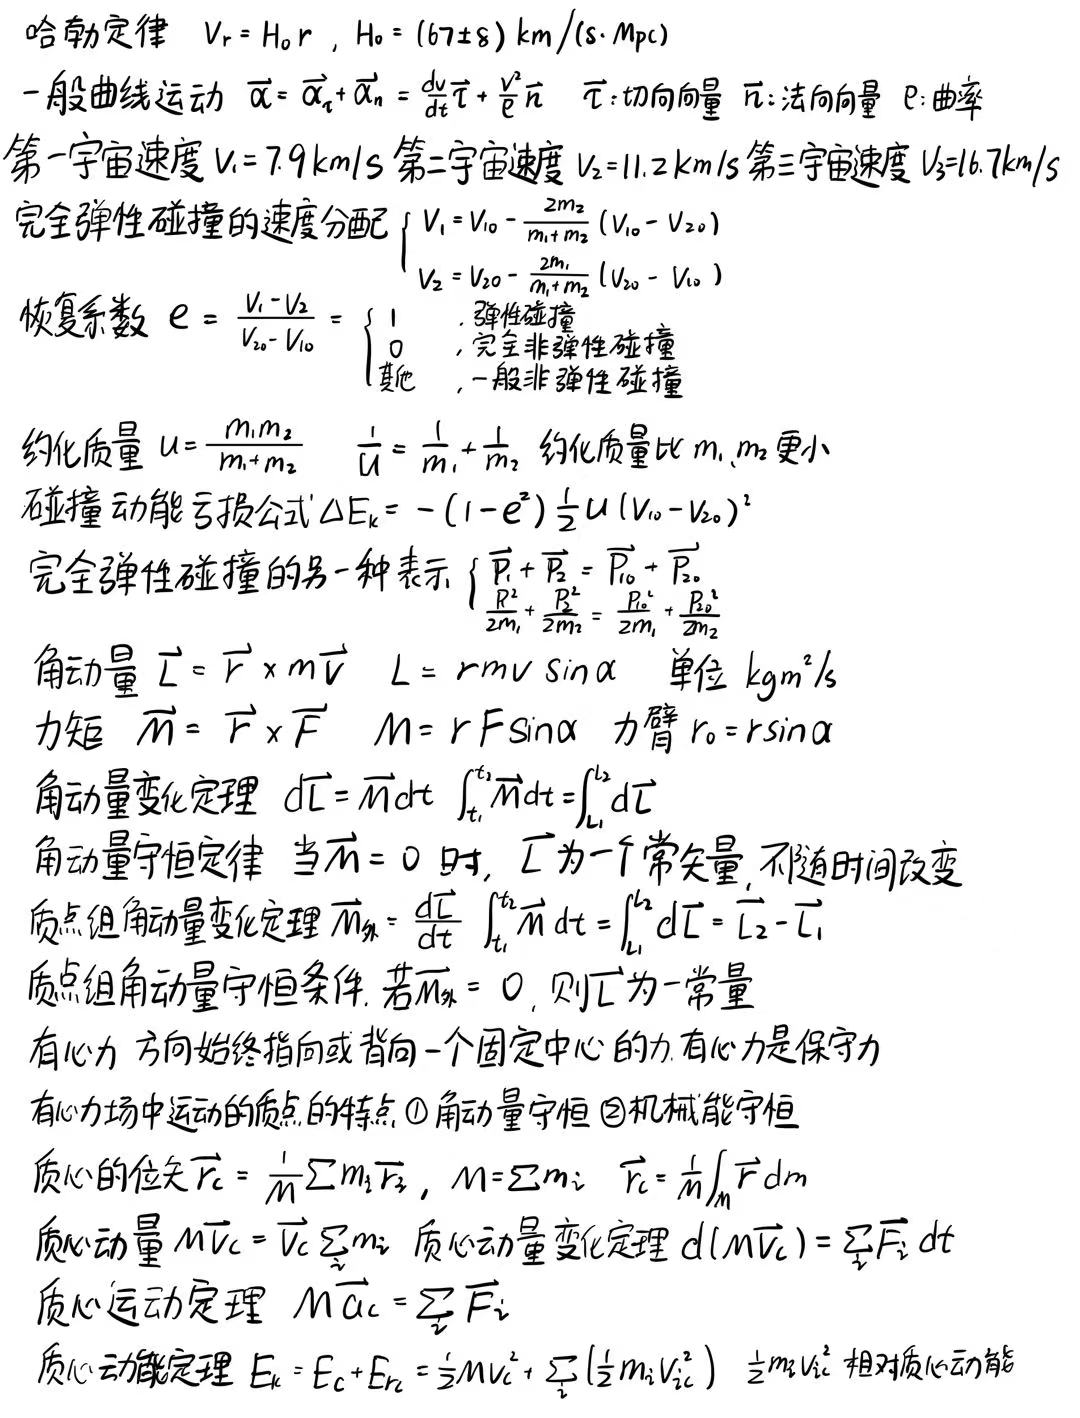 哈勃定律 Vr = H₀r , H₀ = (67±8) km/(s·Mpc)
一般曲线运动 a⃗ = a⃗τ + a⃗n = dv/dt τ⃗ + v²/ρ n⃗ τ⃗:切向向量 n⃗:法向向量 ρ:曲率
第一宇宙速度 V₁=7.9km/s 第二宇宙速度 V₂=11.2km/s 第三宇宙速度 V₃=16.7km/s
完全弹性碰撞的速度分配 { V₁ = V₁₀ - 2m₂/(m₁+m₂) (V₁₀ - V₂₀)
V₂ = V₂₀ - 2m₁/(m₁+m₂) (V₂₀ - V₁₀)
恢复系数 e = (V₁-V₂)/(V₂₀-V₁₀) = { 1 , 弹性碰撞
0 , 完全非弹性碰撞
其他 , 一般非弹性碰撞
约化质量 u = m₁m₂/(m₁+m₂) 1/u = 1/m₁ + 1/m₂ 约化质量比 m₁、m₂ 更小
碰撞动能亏损公式 ΔEk = -(1-e²) ½ u (V₁₀-V₂₀)²
完全弹性碰撞的另一种表示 { P⃗₁ + P⃗₂ = P⃗₁₀ + P⃗₂₀
P₁²/2m₁ + P₂²/2m₂ = P₁₀²/2m₁ + P₂₀²/2m₂
角动量 L⃗ = r⃗ × mv⃗ L = rmv sinα 单位 kgm²/s
力矩 M⃗ = r⃗ × F⃗ M = rFsinα 力臂 r₀ = rsinα
角动量变化定理 dL⃗ = M⃗dt ∫_{t₁}^{t₂} M⃗dt = ∫_{L₁}^{L₂} dL⃗
角动量守恒定律 当M⃗ = 0 时, L⃗为一个常矢量,不随时间改变
质点组角动量变化定理 M⃗外 = dL⃗/dt ∫_{t₁}^{t₂} M⃗ dt = ∫_{L₁}^{L₂} dL⃗ = L⃗₂ - L⃗₁
质点组角动量守恒条件.若M⃗外 = 0,则L⃗为一常量
有心力 方向始终指向或背向一个固定中心的力.有心力是保守力
有心力场中运动的质点的特点 ①角动量守恒 ②机械能守恒
质心的位矢 r⃗c = 1/M Σ mᵢr⃗ᵢ , M = Σmᵢ r⃗c = 1/M ∫_M r⃗ dm
质心动量 MV⃗c = V⃗c Σᵢ mᵢ 质心动量变化定理 d(MV⃗c) = Σᵢ F⃗ᵢ dt
质心运动定理 Ma⃗c = Σᵢ F⃗ᵢ
质心动能定理 Ek = Ec + Erc = ½Mvc² + Σᵢ(½mᵢvᵢc²) ½mᵢvᵢc² 相对质心动能